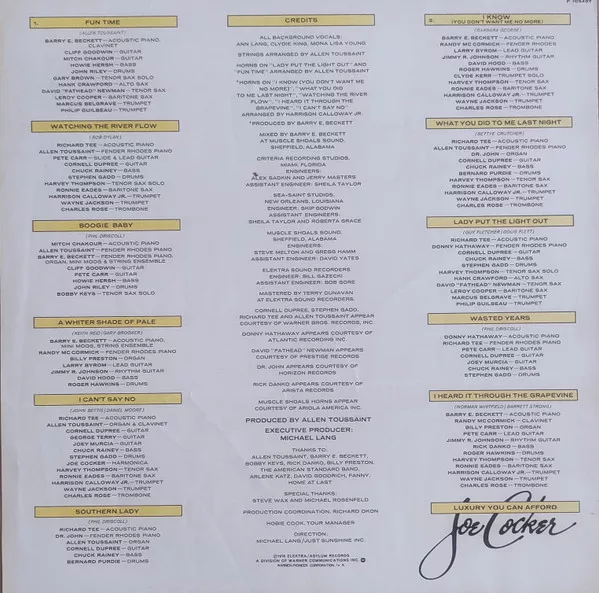 1. FUN TIME
(ALLEN TOUSSAINT)
BARRY E. BECKETT—ACOUSTIC PIANO,
CLAVINET
CLIFF GOODWIN—GUITAR
MITCH CHAKOUR—GUITAR
HOWIE HERSH—BASS
JOHN RILEY—DRUMS
GARY BROWN—TENOR SAX SOLO
HANK CRAWFORD—ALTO SAX
DAVID "FATHEAD" NEWMAN—TENOR SAX
LEROY COOPER—BARITONE SAX
MARCUS BELGRAVE—TRUMPET
PHILIP GUILBEAU—TRUMPET
WATCHING THE RIVER FLOW
(BOB DYLAN)
RICHARD TEE—ACOUSTIC PIANO
ALLEN TOUSSAINT—FENDER RHODES PIANO
PETE CARR—SLIDE & LEAD GUITAR
CORNELL DUPREE—GUITAR
CHUCK RAINEY—BASS
STEPHEN GADD—DRUMS
HARVEY THOMPSON—TENOR SAX SOLO
RONNIE EADES—BARITONE SAX
HARRISON CALLOWAY JR.—TRUMPET
WAYNE JACKSON—TRUMPET
CHARLES ROSE—TROMBONE
BOOGIE BABY
(PHIL DRISCOLL)
MITCH CHAKOUR—ACOUSTIC PIANO
ALLEN TOUSSAINT—FENDER RHODES PIANO
BARRY E. BECKETT—FENDER RHODES PIANO,
ORGAN, MINI MOOG & STRING ENSEMBLE
CLIFF GOODWIN—GUITAR
PETE CARR—GUITAR
HOWIE HERSH—BASS
JOHN RILEY—DRUMS
BOBBY KEYS—TENOR SAX SOLO
A WHITER SHADE OF PALE
(KEITH REID/GARY BROOKER)
BARRY E. BECKETT—ACOUSTIC PIANO,
MINI MOOG, STRING ENSEMBLE
RANDY McCORMICK—FENDER RHODES PIANO
BILLY PRESTON—ORGAN
LARRY BYROM—LEAD GUITAR
JIMMY R. JOHNSON—RHYTHM GUITAR
DAVID HOOD—BASS
ROGER HAWKINS—DRUMS
I CAN'T SAY NO
(JOHN BETTIS/DANIEL MOORE)
RICHARD TEE—ACOUSTIC PIANO
ALLEN TOUSSAINT—ORGAN & CLAVINET
CORNELL DUPREE—GUITAR
GEORGE TERRY—GUITAR
JOEY MURCIA—GUITAR
CHUCK RAINEY—BASS
STEPHEN GADD—DRUMS
JOE COCKER—HARMONICA
HARVEY THOMPSON—TENOR SAX
RONNIE EADES—BARITONE SAX
HARRISON CALLOWAY JR.—TRUMPET
WAYNE JACKSON—TRUMPET
CHARLES ROSE—TROMBONE
SOUTHERN LADY
(PHIL DRISCOLL)
RICHARD TEE—ACOUSTIC PIANO
DR. JOHN—FENDER RHODES PIANO
ALLEN TOUSSAINT—ORGAN
CORNELL DUPREE—GUITAR
CHUCK RAINEY—BASS
BERNARD PURDIE—DRUMS
CREDITS
ALL BACKGROUND VOCALS:
ANN LANG, CLYDIE KING, MONA LISA YOUNG
STRINGS ARRANGED BY ALLEN TOUSSAINT
HORNS ON "LADY PUT THE LIGHT OUT" AND
"FUN TIME" ARRANGED BY ALLEN TOUSSAINT
*HORNS ON "I KNOW (YOU DON'T WANT ME
NO MORE)", "WHAT YOU DID
TO ME LAST NIGHT", "WATCHING THE RIVER
FLOW", "I HEARD IT THROUGH THE
GRAPEVINE", "I CAN'T SAY NO"
ARRANGED BY HARRISON CALLOWAY JR.
*PRODUCED BY BARRY E. BECKETT
MIXED BY BARRY E. BECKETT
AT MUSCLE SHOALS SOUND,
SHEFFIELD, ALABAMA
CRITERIA RECORDING STUDIOS,
MIAMI, FLORIDA
ENGINEERS:
ALEX SADKIN AND JERRY MASTERS
ASSISTANT ENGINEER: SHEILA TAYLOR
SEA-SAINT STUDIOS,
NEW ORLEANS, LOUISIANA
ENGINEER: SKIP GODWIN
ASSISTANT ENGINEERS:
SHEILA TAYLOR AND ROBERTA GRACE
MUSCLE SHOALS SOUND,
SHEFFIELD, ALABAMA
ENGINEERS:
STEVE MELTON AND GREGG HAMM
ASSISTANT ENGINEER: DAVID YATES
ELEKTRA SOUND RECORDERS
ENGINEER: BILL GAZECKI
ASSISTANT ENGINEER: BOB GORE
MASTERED BY TERRY DUNAVAN
AT ELEKTRA SOUND RECORDERS.
CORNELL DUPREE, STEPHEN GADD,
RICHARD TEE AND ALLEN TOUSSAINT APPEAR
COURTESY OF WARNER BROS. RECORDS, INC.
DONNY HATHAWAY APPEARS COURTESY OF
ATLANTIC RECORDING INC.
DAVID "FATHEAD" NEWMAN APPEARS
COURTESY OF PRESTIGE RECORDS
DR. JOHN APPEARS COURTESY OF
HORIZON RECORDS
RICK DANKO APPEARS COURTESY OF
ARISTA RECORDS
MUSCLE SHOALS HORNS APPEAR
COURTESY OF ARIOLA AMERICA INC.
PRODUCED BY ALLEN TOUSSAINT
EXECUTIVE PRODUCER:
MICHAEL LANG
THANKS TO:
ALLEN TOUSSAINT, BARRY E. BECKETT,
BOBBY KEYS, RICK DANKO, BILLY PRESTON,
THE AMERICAN STANDARD BAND,
ARLENE KATZ, DAVID GOODRICH, FANNY,
HOME AT LAST
SPECIAL THANKS:
STEVE WAX AND MICHAEL ROSENFELD
PRODUCTION COORDINATION: RICHARD DIXON
HOBIE COOK, TOUR MANAGER
DIRECTION:
MICHAEL LANG/JUST SUNSHINE INC.
©1978 ELEKTRA/ASYLUM RECORDS
A DIVISION OF WARNER COMMUNICATIONS INC.
2. I KNOW
(YOU DON'T WANT ME NO MORE)
(BARBARA GEORGE)
BARRY E. BECKETT—ACOUSTIC PIANO
RANDY McCORMICK—FENDER RHODES
LARRY BYROM—LEAD GUITAR
JIMMY R. JOHNSON—RHYTHM GUITAR
DAVID HOOD—BASS
ROGER HAWKINS—DRUMS
CLYDE KERR—TRUMPET SOLO
HARVEY THOMPSON—TENOR SAX
RONNIE EADES—BARITONE SAX
HARRISON CALLOWAY JR.—TRUMPET
WAYNE JACKSON—TRUMPET
CHARLES ROSE—TROMBONE
WHAT YOU DID TO ME LAST NIGHT
(BETTYE CRUTCHER)
RICHARD TEE—ACOUSTIC PIANO
ALLEN TOUSSAINT—FENDER RHODES PIANO
DR. JOHN—ORGAN
CORNELL DUPREE—GUITAR
CHUCK RAINEY—BASS
BERNARD PURDIE—DRUMS
HARVEY THOMPSON—TENOR SAX
RONNIE EADES—BARITONE SAX
HARRISON CALLOWAY JR.—TRUMPET
WAYNE JACKSON—TRUMPET
CHARLES ROSE—TROMBONE
LADY PUT THE LIGHT OUT
(GUY FLETCHER/DOUG FLETT)
RICHARD TEE—ACOUSTIC PIANO
DONNY HATHAWAY—FENDER RHODES PIANO
CORNELL DUPREE—GUITAR
CHUCK RAINEY—BASS
STEPHEN GADD—DRUMS
HARVEY THOMPSON—TENOR SAX SOLO
HANK CRAWFORD—ALTO SAX
DAVID "FATHEAD" NEWMAN—TENOR SAX
LEROY COOPER—BARITONE SAX
MARCUS BELGRAVE—TRUMPET
PHILIP GUILBEAU—TRUMPET
WASTED YEARS
(PHIL DRISCOLL)
DONNY HATHAWAY—ACOUSTIC PIANO
RICHARD TEE—FENDER RHODES PIANO
PETE CARR—LEAD GUITAR
CORNELL DUPREE—GUITAR
JOEY MURCIA—GUITAR
CHUCK RAINEY—BASS
STEPHEN GADD—DRUMS
I HEARD IT THROUGH THE GRAPEVINE
(NORMAN WHITFIELD/BARRETT STRONG)
BARRY E. BECKETT—ACOUSTIC PIANO
RANDY McCORMICK—CLAVINET
BILLY PRESTON—ORGAN
PETE CARR—LEAD GUITAR
JIMMY R. JOHNSON—RHYTHM GUITAR
RICK DANKO—BASS
ROGER HAWKINS—DRUMS
HARVEY THOMPSON—TENOR SAX
RONNIE EADES—BARITONE SAX
HARRISON CALLOWAY JR.—TRUMPET
WAYNE JACKSON—TRUMPET
CHARLES ROSE—TROMBONE
LUXURY YOU CAN AFFORD
Joe Cocker